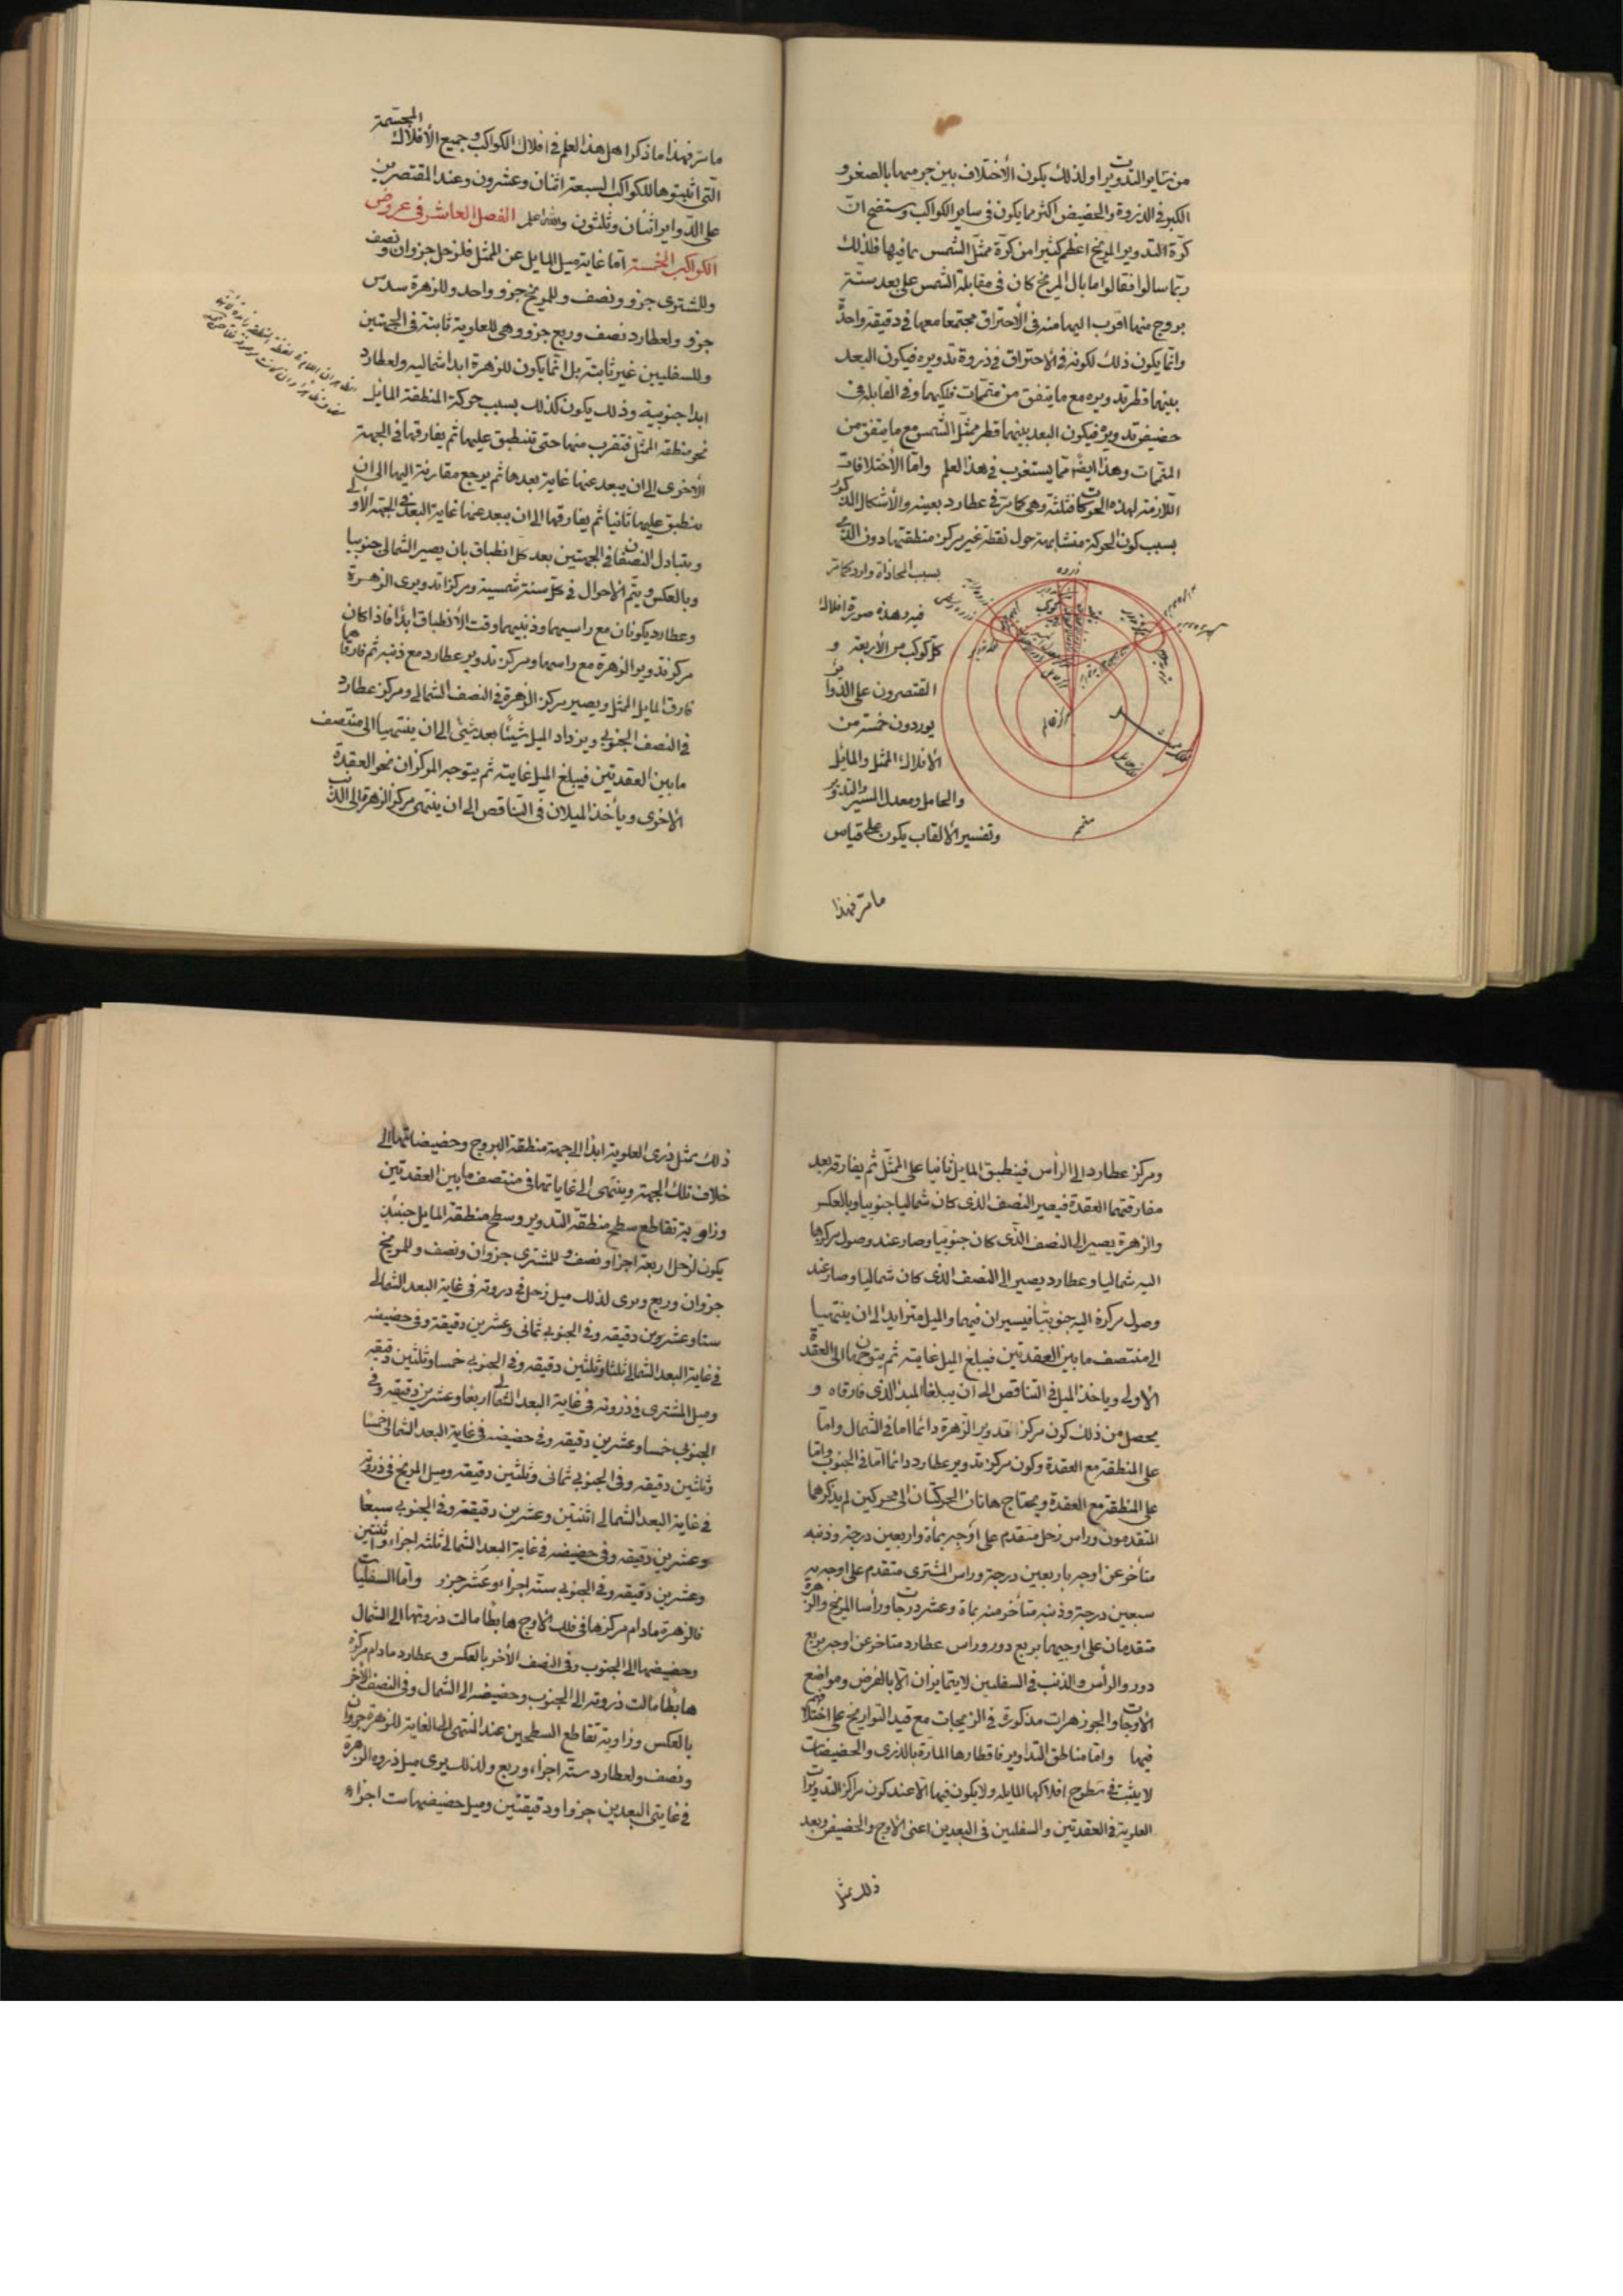 من ساير التدويرات ولذلك يكون الأختلاف بين جرميهما بالصغر و
الكبر في الذروة والحضيض اكثر مما يكون في ساير الكواكب وستضح انّ
كرّة التدوير المريخ اعظم كثيرا من كرّة ممثل الشمس بما فيها فلذلك
ربّما سالوا فقالوا ما بال المريخ كان في مقابلة الشمس على بعد ستّة
بروج منها اقرب اليها منه في الأحتراق مجتمعا معها في دقيقة واحدة
وانّما يكون ذلك لكونه في الاحتراق في ذروة تدويره فيكون البعد
بينهما قطر تدويره مع ما يتفق من متممات فلكيهما وفي المقابله في
حضيض تدويره فيكون البعد بينهما قطر ممثل الشمس مع ما يتفق من
المتممات وهذا ايضا مما يستغرب في هذا العلم وامّا الأختلافات
اللازمة لهذه الحركات فثلثة وهي كما مرّ في عطارد بعينه والأشكال المذكور
بسبب كون الحركة متشابهة حول نقطة غير مركز منطقتها دون الذي
بسبب المحاذاة وارد كما مرّ
فيه وهذه صورة افلاك
كلّ كوكب من الأربعة و
المقتصرون على الدوائر
يوردون خمسة من
الأفلاك الممثل والمايل
والحامل ومعدل المسير والتدوير
وتفسير الألقاب يكون على قياس
ذروه
مركز عالم
متمم
ما مرّ فهذا
ما مرّ فهذا ما ذكرا هل هذا العلم في افلاك الكواكب وجميع الأفلاك المجسّمة
الّتي اثبتوها للكواكب السبعة اثنان وعشرون وعند المقتصرين
على الدواير اثنان وثلثون والله اعلم الفصل العاشر في عروض
الكواكب الخمسة امّا غاية ميل المايل عن الممثل فلزحل جزوان ونصف
وللمشترى جزو ونصف وللمريخ جزو واحد وللزهرة سدس
جزو ولعطارد نصف وربع جزو وهي للعلوية ثابتة في الجهتين
وللسفليين غير ثابتة بل انّما يكون للزهرة ابدا شماليه ولعطارد
ابدا جنوبية وذلك يكون كذلك بسبب حركة المنطقة المائل
نحو منطقة الممثل فتقرب منها حتى تنطبق عليها ثم يفارقها في الجهة
الأخرى الى ان يبعد عنها غاية بعدها ثم يرجع مقاربة اليها الى ان
ينطبق عليها ثانيا ثم يفارقها الى ان يبعد عنها غاية البعد في الجهة الأولى
ويتبادل النصفان في الجهتين بعد كل انطباق بان يصير الشمالي جنوبيا
وبالعكس ويتّم الاحوال في كلّ سنة شمسية ومركزا تدويرى الزهرة
وعطارد يكونان مع راسيهما وذنبيهما وقت الأنطباق ابدا فاذا كان
مركز تدوير الزهرة مع راسها ومركز تدوير عطارد مع ذنبه ثم فارقاهما
فارق المايل الممثل ويصير مركز الزهرة في النصف الشمالي ومركز عطارد
في النصف الجنوبي ويزداد الميل شيئا بعد شيئ الى ان ينتهيا الى منتصف
ما بين العقدتين فيبلغ الميل غايته ثم يتوجه المركزان نحو العقدة
الأخرى ويأخذ الميلان في التناقص الى ان ينتهى مركز الزهرة الى الذنب
ومركز عطارد الى الرأس فينطبق المايل ثانيا على الممثل ثم يفارقه بعد
مفارقتهما العقدة فيصير النصف الذى كان شماليا جنوبيا وبالعكس
والزهرة يصير الى النصف الذى كان جنوبيا وصار عند وصول مركزها
اليه شماليا وعطارد يصير الى النصف الذى كان شماليا وصار عند
وصول مركزه اليه جنوبيّا فيسيران فيهما والميل متزايد الى ان ينتهيا
الى منتصف ما بين العقدتين فيبلغ الميل غايته ثم يتوجهان الى العقدة
الاولى وياخذ الميل في التناقص الى ان يبلغا المبدا الذى فارقاه و
يحصل من ذلك كون مركز تدوير الزهرة دائما امّا في الشمال وامّا
على المنطقة مع العقدة وكون مركز تدوير عطارد دائما امّا في الجنوب وامّا
على المنطقة مع العقدة ويحتاج هاتان الحركتان الى محركين لم يذكرهما
المتقدمون وراس زحل متقدم على اوجه بمأة واربعين درجة وذنبه
متأخر عن اوجه باربعين درجة وراس المشترى متقدم على اوجه بـ
سبعين درجة وذنبه متأخر منه بمأة وعشر درجات ورأسا المريخ والزهرة
متقدمان على اوجيهما بربع دور وراس عطارد متاخر عن اوجه بربع
دور والرأس والذنب في السفليين لا يتمايزان الّا بالفرض ومواضع
الأوجات والجوزهرات مذكورة في الزيجات مع قيد التواريخ على اختلاف
فيها وامّا مناطق التداوير فاقطارها المارّة بالذرى والحضيضات
لا يثبت في سطوح افلاكها المايله ولا يكون فيها الّا عند كون مراكز التدويرات
العلوية في العقدتين والسفليين في البعدين اعنى الأوج والحضيض وبعد
ذلك يمثل
ذلك يمثل ذرى العلوية ابدا الى جهة منطقة البروج وحضيضاتها الى
خلاف تلك الجهة وينتهى الى غاياتها في منتصف ما بين العقدتين
وزاوية تقاطع سطح منطقة التدوير وسطح منطقة المايل حينئذ
يكون لزحل اربعة اجزاء ونصف وللمشترى جزوان ونصف وللمريخ
جزوان وربع ويرى لذلك ميل زحل في ذروته في غاية البعد الشمالي
ستا وعشرين دقيقه وفي الجنوبي ثماني وعشرين دقيقة وفي حضيضه
في غاية البعد الشمالي ثلثا وثلثين دقيقه وفي الجنوبي خمسا وثلثين دقيقه
وميل المشترى في ذروته في غاية البعد الشمالي اربعا وعشرين دقيقه وفي
الجنوبي خمسا وعشرين دقيقه وفي حضيضه في غاية البعد الشمالي خمسا
وثلثين دقيقه وفي الجنوبي ثماني وثلثين دقيقه وميل المريخ في ذروته
في غاية البعد الشمالي اثنتين وعشرين دقيقة وفي الجنوبي سبعا
وعشرين دقيقه وفي حضيضه في غاية البعد الشمالي ثلثه اجزاء واثنتين
وعشرين دقيقه وفي الجنوبي ستة اجزاء وعشر جزو وامّا السفليات
فالزهرة مادام مركزها في فلك الاوج هابطا مالت ذروتها الى الشمال
وحضيضها الى الجنوب وفي النصف الأخر بالعكس وعطارد مادام مركزه
هابطا مالت ذروته الى الجنوب وحضيضه الى الشمال وفي النصف الأخر
بالعكس وزاوية تقاطع السطحين عند المنتهى الى الغاية للزهرة جزوان
ونصف ولعطارد ستة اجزاء وربع ولذلك يرى ميل ذروه الزهرة
في غايتى البعدين جزوا ودقيقتين وميل حضيضها ست اجزاء